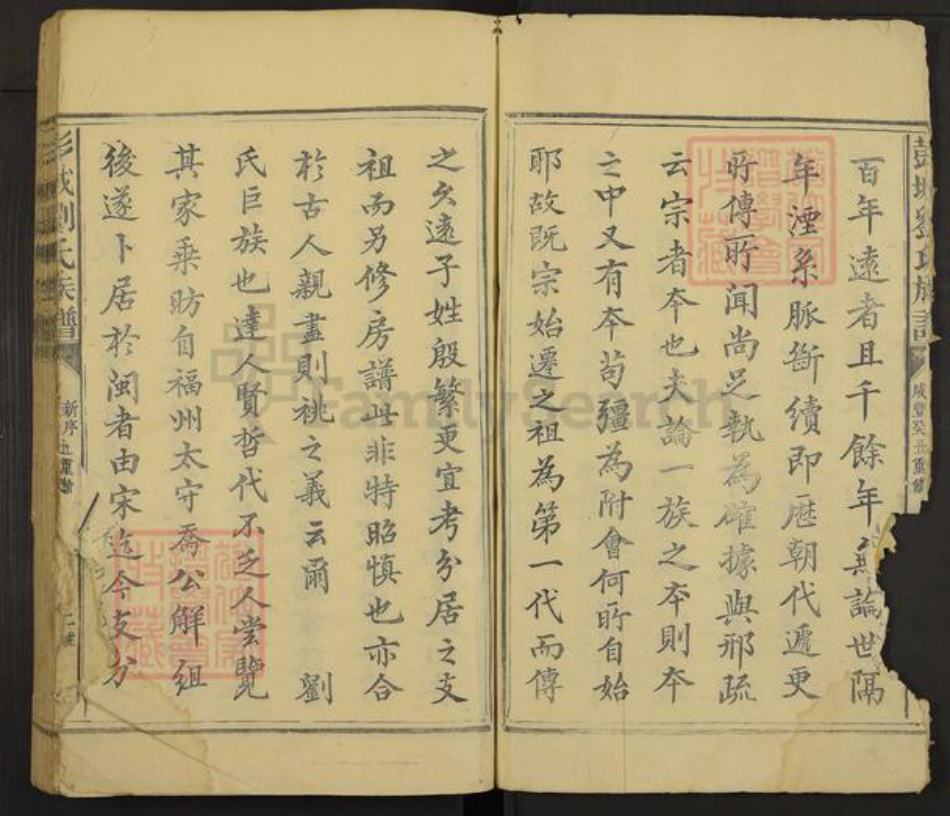 彭城劉氏族譜
咸豐癸丑重鐫
百年遠者且千餘年無論世隔
年湮系脈斷續即歷朝代遞更
所傳所聞尚足執為確據與邢疏
云宗者本也夫論一族之本則本
之中又有本苟彊為附會何所自始
耶故既宗始遷之祖為第一代而傳
之久遠子姓殷繁更宜考分居之支
祖而另修房譜此非特昭慎也亦合
於古人親盡則祧之義云爾 劉
氏巨族也達人賢哲代不乏人嘗覽
其家乘昉自福州太守喬公解組
後遂卜居於閩者由宋迄今支分
彭城劉氏族譜
新序
丑重鐫
FamilySearch